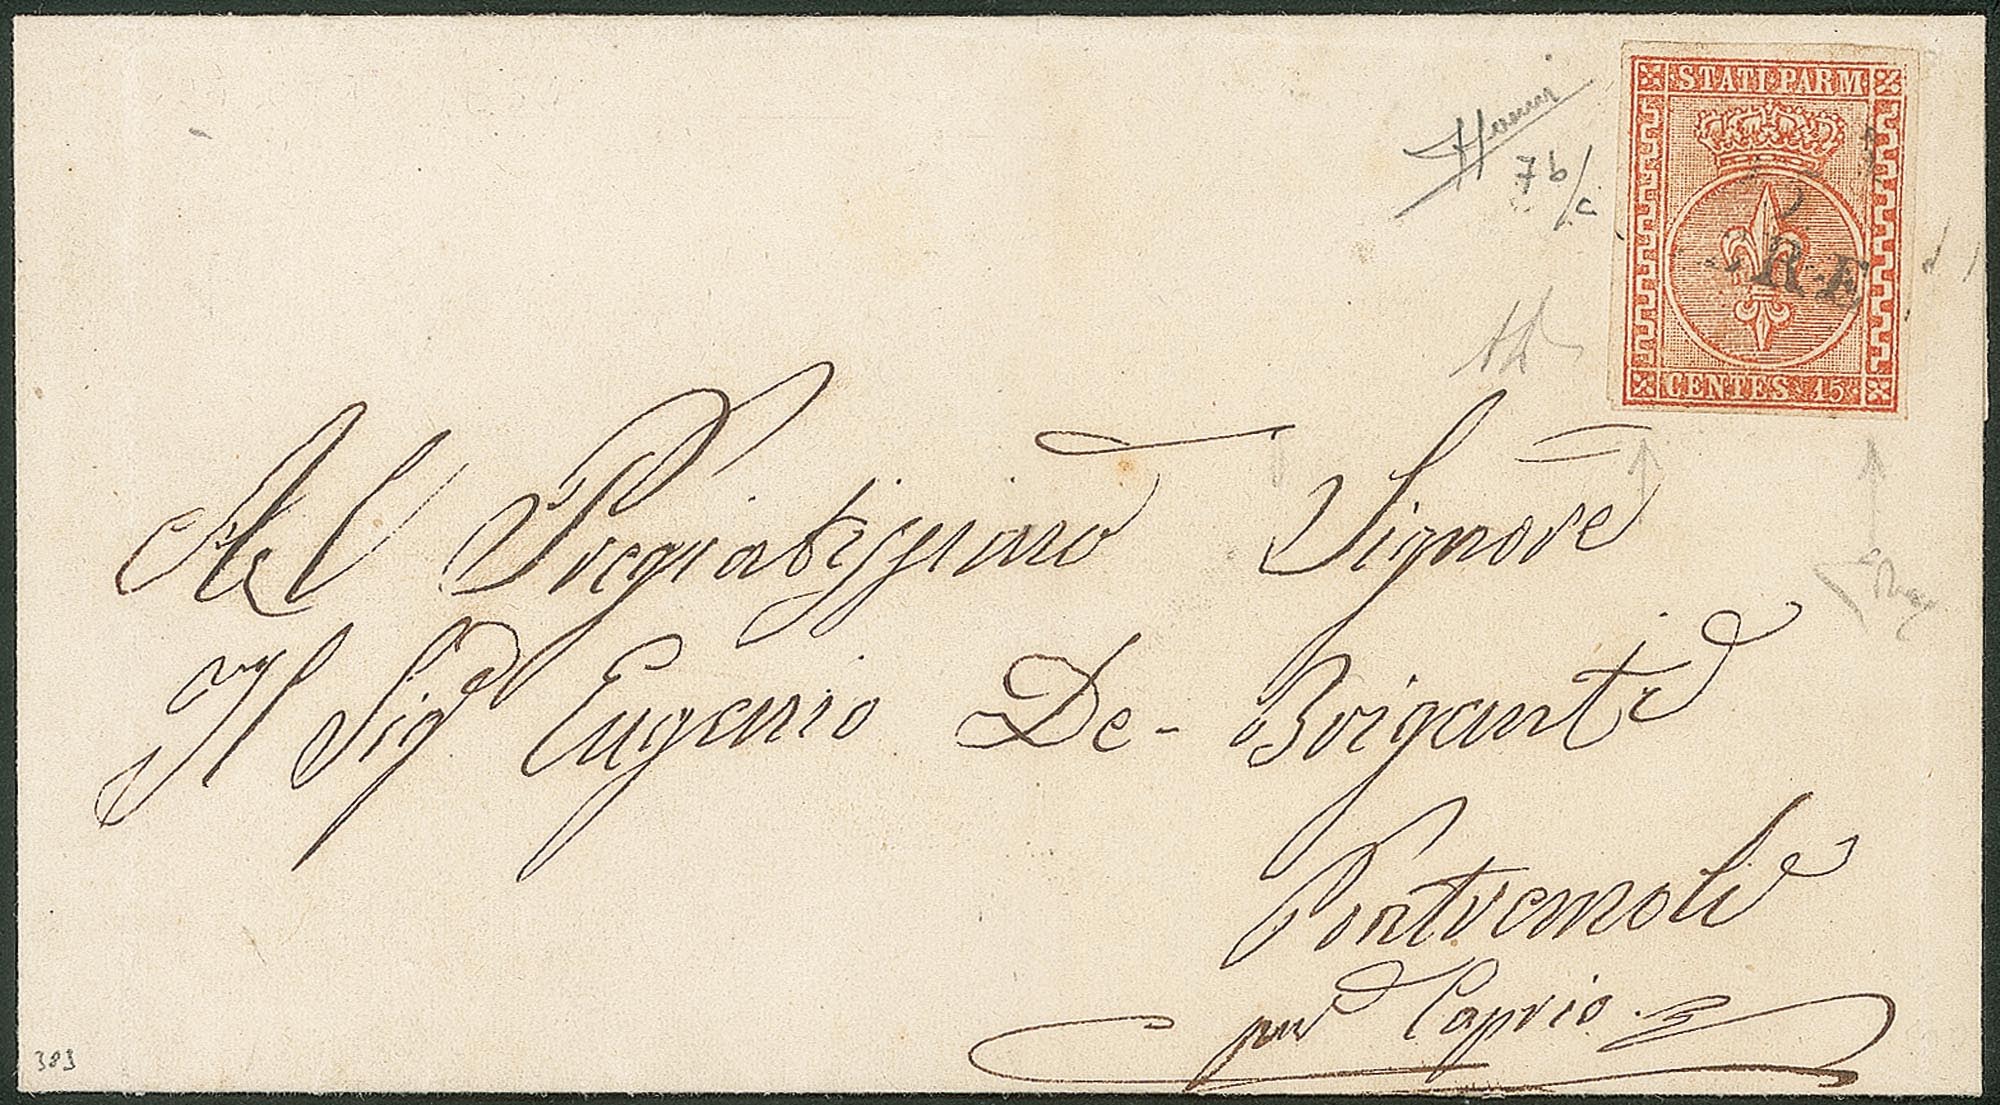 STATI PARM
ORE
CENTES. 15
7 b/c
Al Pregiatissimo Signore
Il Sigr Eugenio De-Briganti
Pontremoli
per Caprio.
383